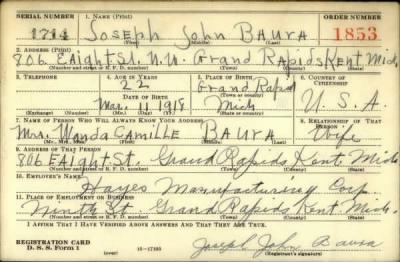 SERIAL NUMBER 1. NAME (Print) ORDER NUMBER
1714 JOSEPH JOHN BAURA 1853
(First) (Middle) (Last)
2. ADDRESS (Print)
806 EAIGHT ST. N.W. GRAND RAPIDS KENT MICH
(Number and street or R. F. D. number) (Town) (County) (State)
3. TELEPHONE 4. AGE IN YEARS 5. PLACE OF BIRTH 6. COUNTRY OF CITIZENSHIP
22 Grand Rapids
DATE OF BIRTH (Town or county)
Mar. 11 1918 Mich U. S. A.
(Exchange) (Number) (Mo.) (Day) (Yr.) (State or country)
7. NAME OF PERSON WHO WILL ALWAYS KNOW YOUR ADDRESS 8. RELATIONSHIP OF THAT PERSON
Mrs. Wanda Camille BAURA Wife
(Mr., Mrs., Miss) (First) (Middle) (Last)
9. ADDRESS OF THAT PERSON
806 EAIGHT St. Grand Rapids Kent Mich
(Number and street or R. F. D. number) (Town) (County) (State)
10. EMPLOYER'S NAME
Hayes Manufacturing Corp
11. PLACE OF EMPLOYMENT OR BUSINESS
Ninth St. Grand Rapids Kent Mich.
(Number and street or R. F. D. number) (Town) (County) (State)
I AFFIRM THAT I HAVE VERIFIED ABOVE ANSWERS AND THAT THEY ARE TRUE.
REGISTRATION CARD
D. S. S. Form 1 (over) 16-17105 Joseph John Baura
(Registrant's signature)